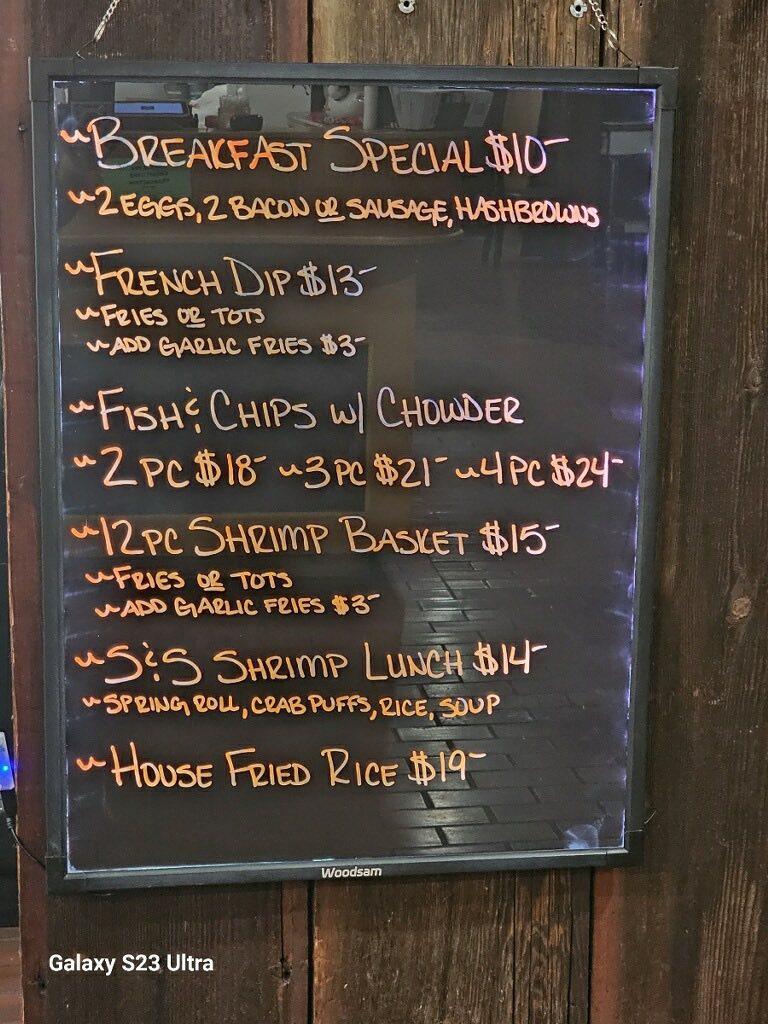 ~Breakfast Special $10-
~2 eggs, 2 bacon or sausage, hashbrowns
~French Dip $13-
~Fries or tots
~Add garlic fries $3-
~Fish & Chips w/ Chowder
~2 pc $18- ~3 pc $21- ~4 pc $24-
~12 pc Shrimp Basket $15-
~Fries or tots
~Add garlic fries $3-
~S&S Shrimp Lunch $14-
~Spring roll, crab puffs, rice, soup
~House Fried Rice $19-
Woodsam
Galaxy S23 Ultra